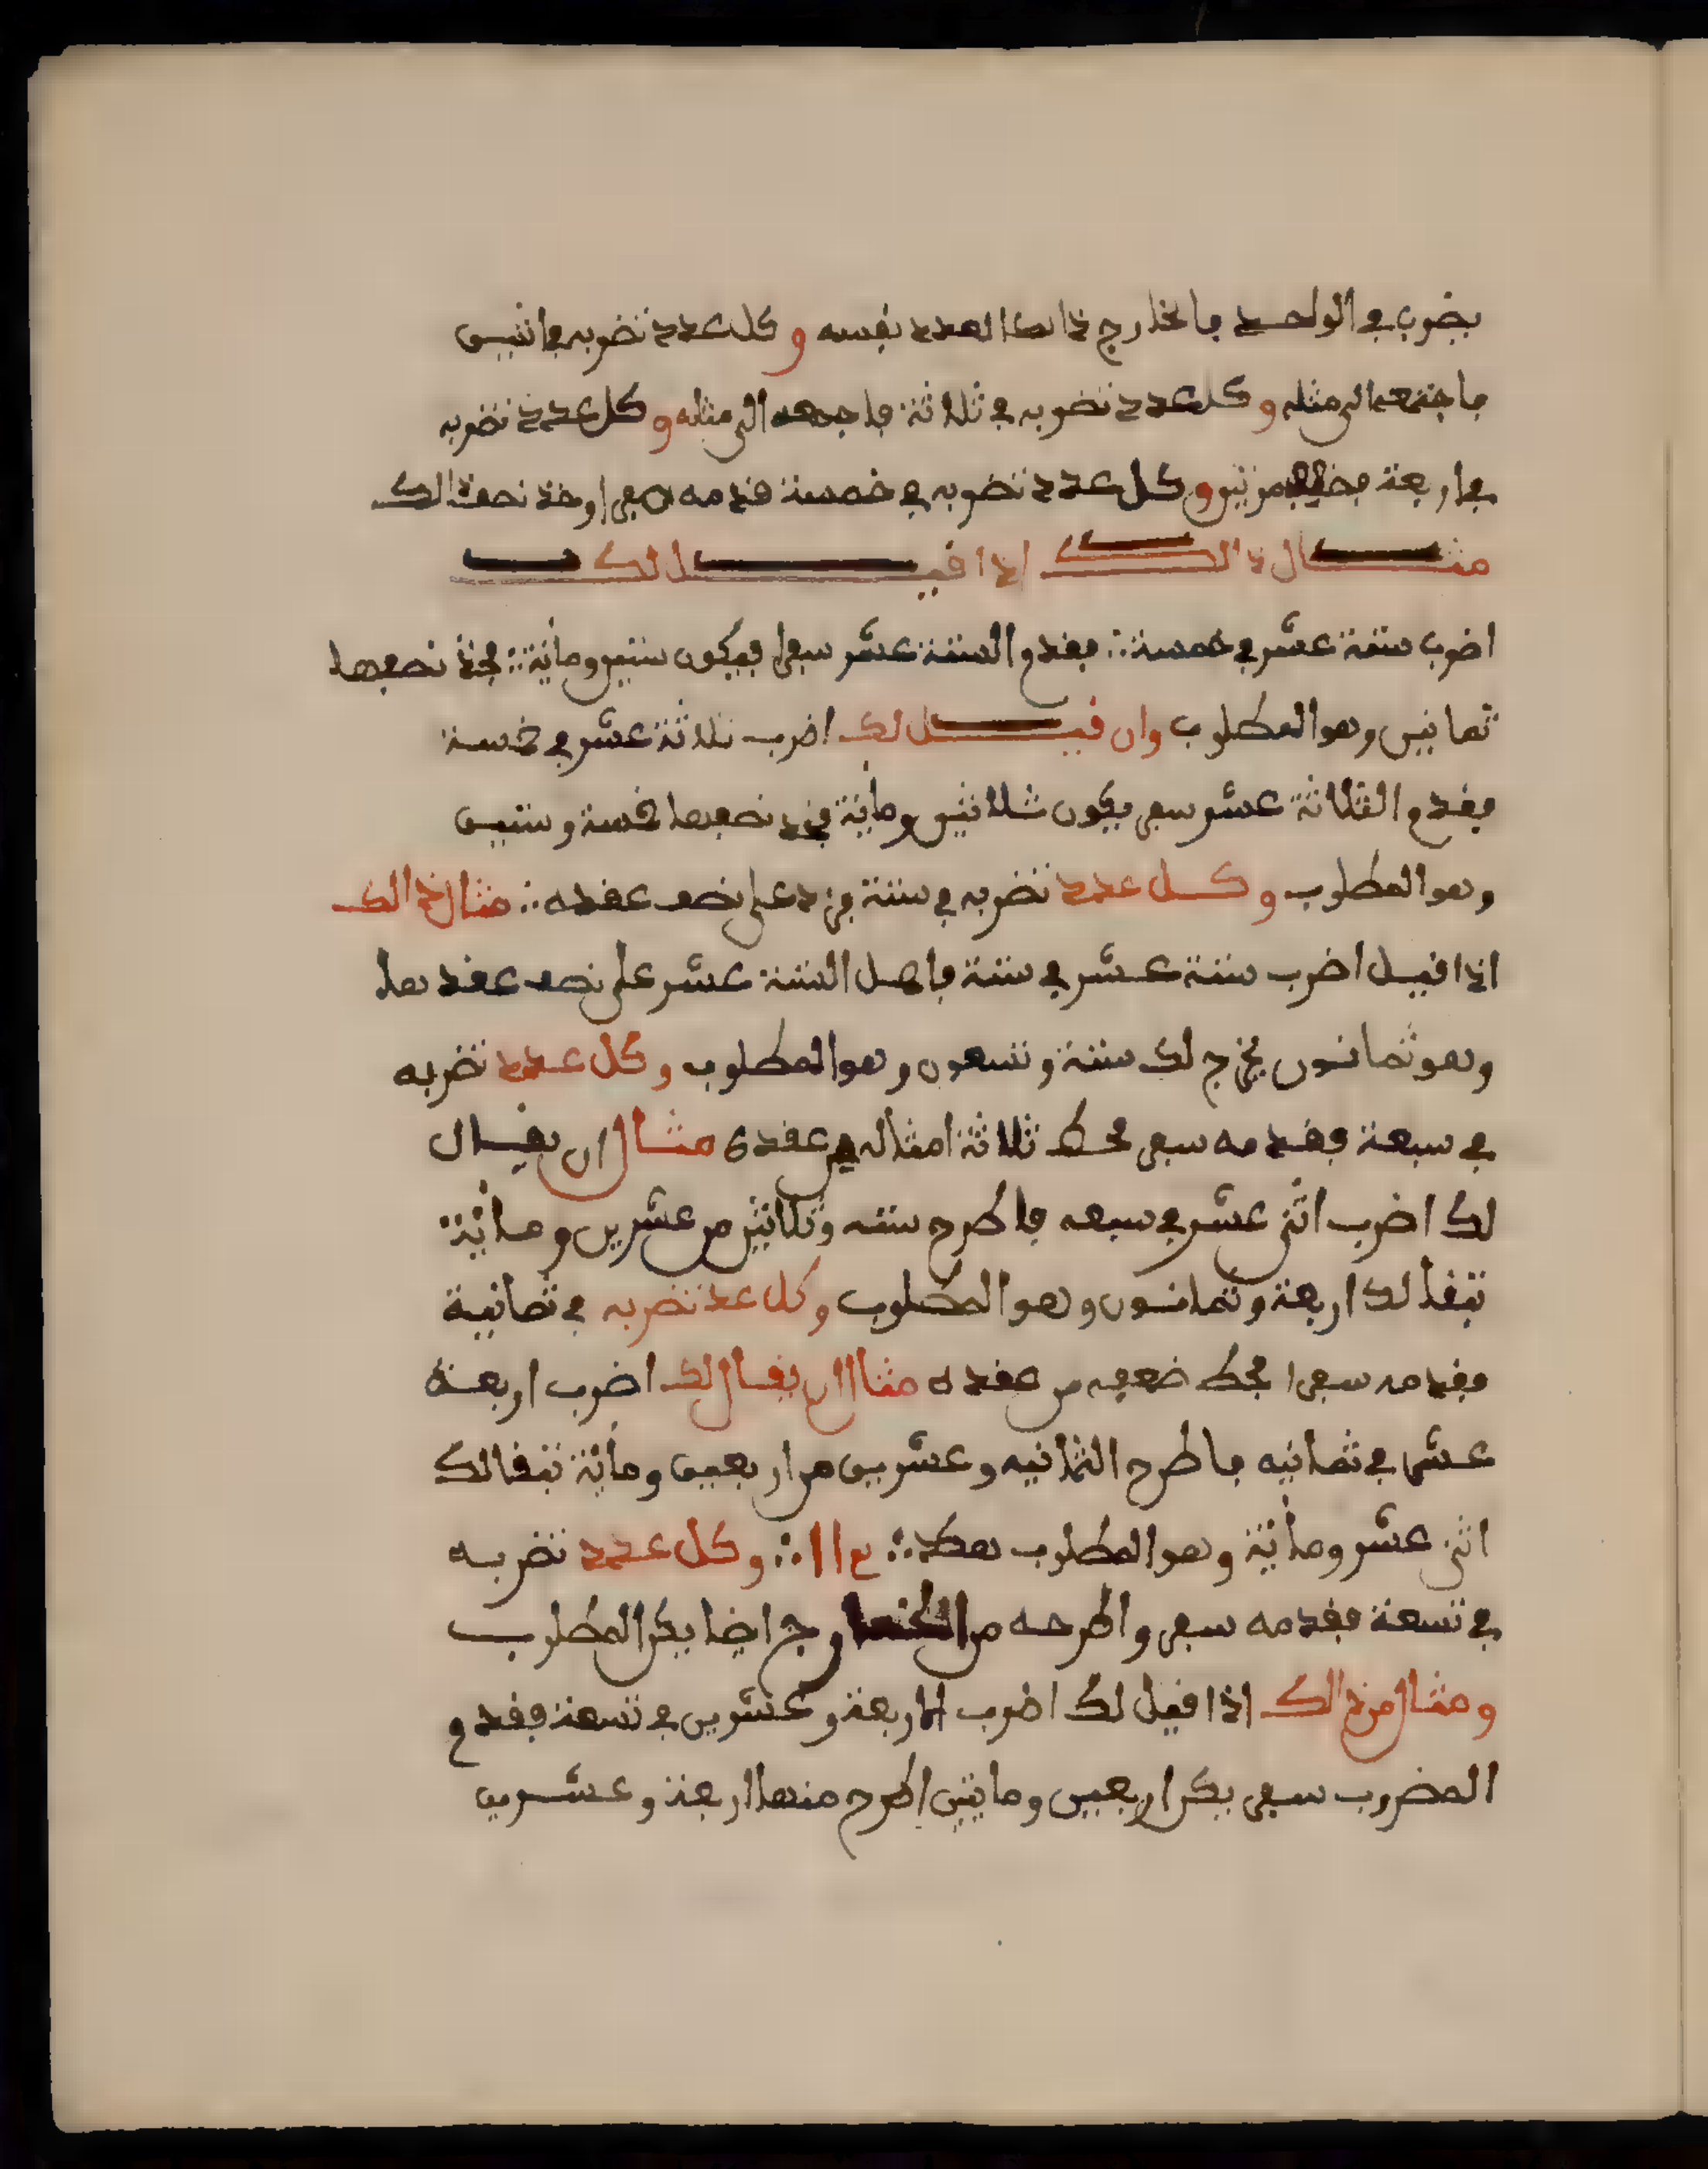 يضرب في الواحد فالخارج ذالك العدد نفسه وكل عدد تضربه في اثنين
فاجمعه الى مثله وكل عدد تضربه في ثلاثة فاجمعه الى مثله وكل عدد تضربه
في اربعة مرتين وكل عدد تضربه في خمسة قدمه سفرا وخذ نصف ذالك
مثال ذالك اذا قيل لك
اضرب ستة عشر في خمسة فقدم الستة عشر سفرا فيكون ستين ومائة فخذ نصفها
ثمانين وهو المطلوب وان قيل لك اضرب ثلاثة عشر في خمسة
فقدم الثلاثة عشر سفر يكون ثلاثين ومائة فزد نصفها خمسة وستين
وهو المطلوب وكل عدد تضربه في ستة فزد على نصف عقده مثال ذالك
اذا قيل اضرب ستة عشر في ستة فاحمل الستة عشر على نصف عقدها
وهو ثمانون يخرج لك ستة وتسعون وهو المطلوب وكل عدد تضربه
في سبعة فقدمه سفر فحط ثلاثة امثاله من عقده مثال ان يقال
لك اضرب اثنى عشر في سبعه فاطرح سته وثلاثين من عشرين ومائة
تبقا لك اربعة وثمانون وهو المطلوب وكل عدد تضربه في ثمانية
فقدمه سفرا فحط ضعفه من عقده مثال ان يقال لك اضرب اربعة
عشر في ثمانيه فاطرح الثمانيه وعشرين من اربعين ومائة تبقا لك
اثنى عشر ومائة وهو المطلوب هكذ ١١٢ وكل عدد تضربه
في تسعة فقدمه سفر واطرحه من الخارج ايضا يكن المطلوب
ومثال من ذالك اذا قيل لك اضرب اربعة وعشرين في تسعة فقدم
المضروب سفر يكن اربعين ومايتين اطرح منها اربعة وعشرين